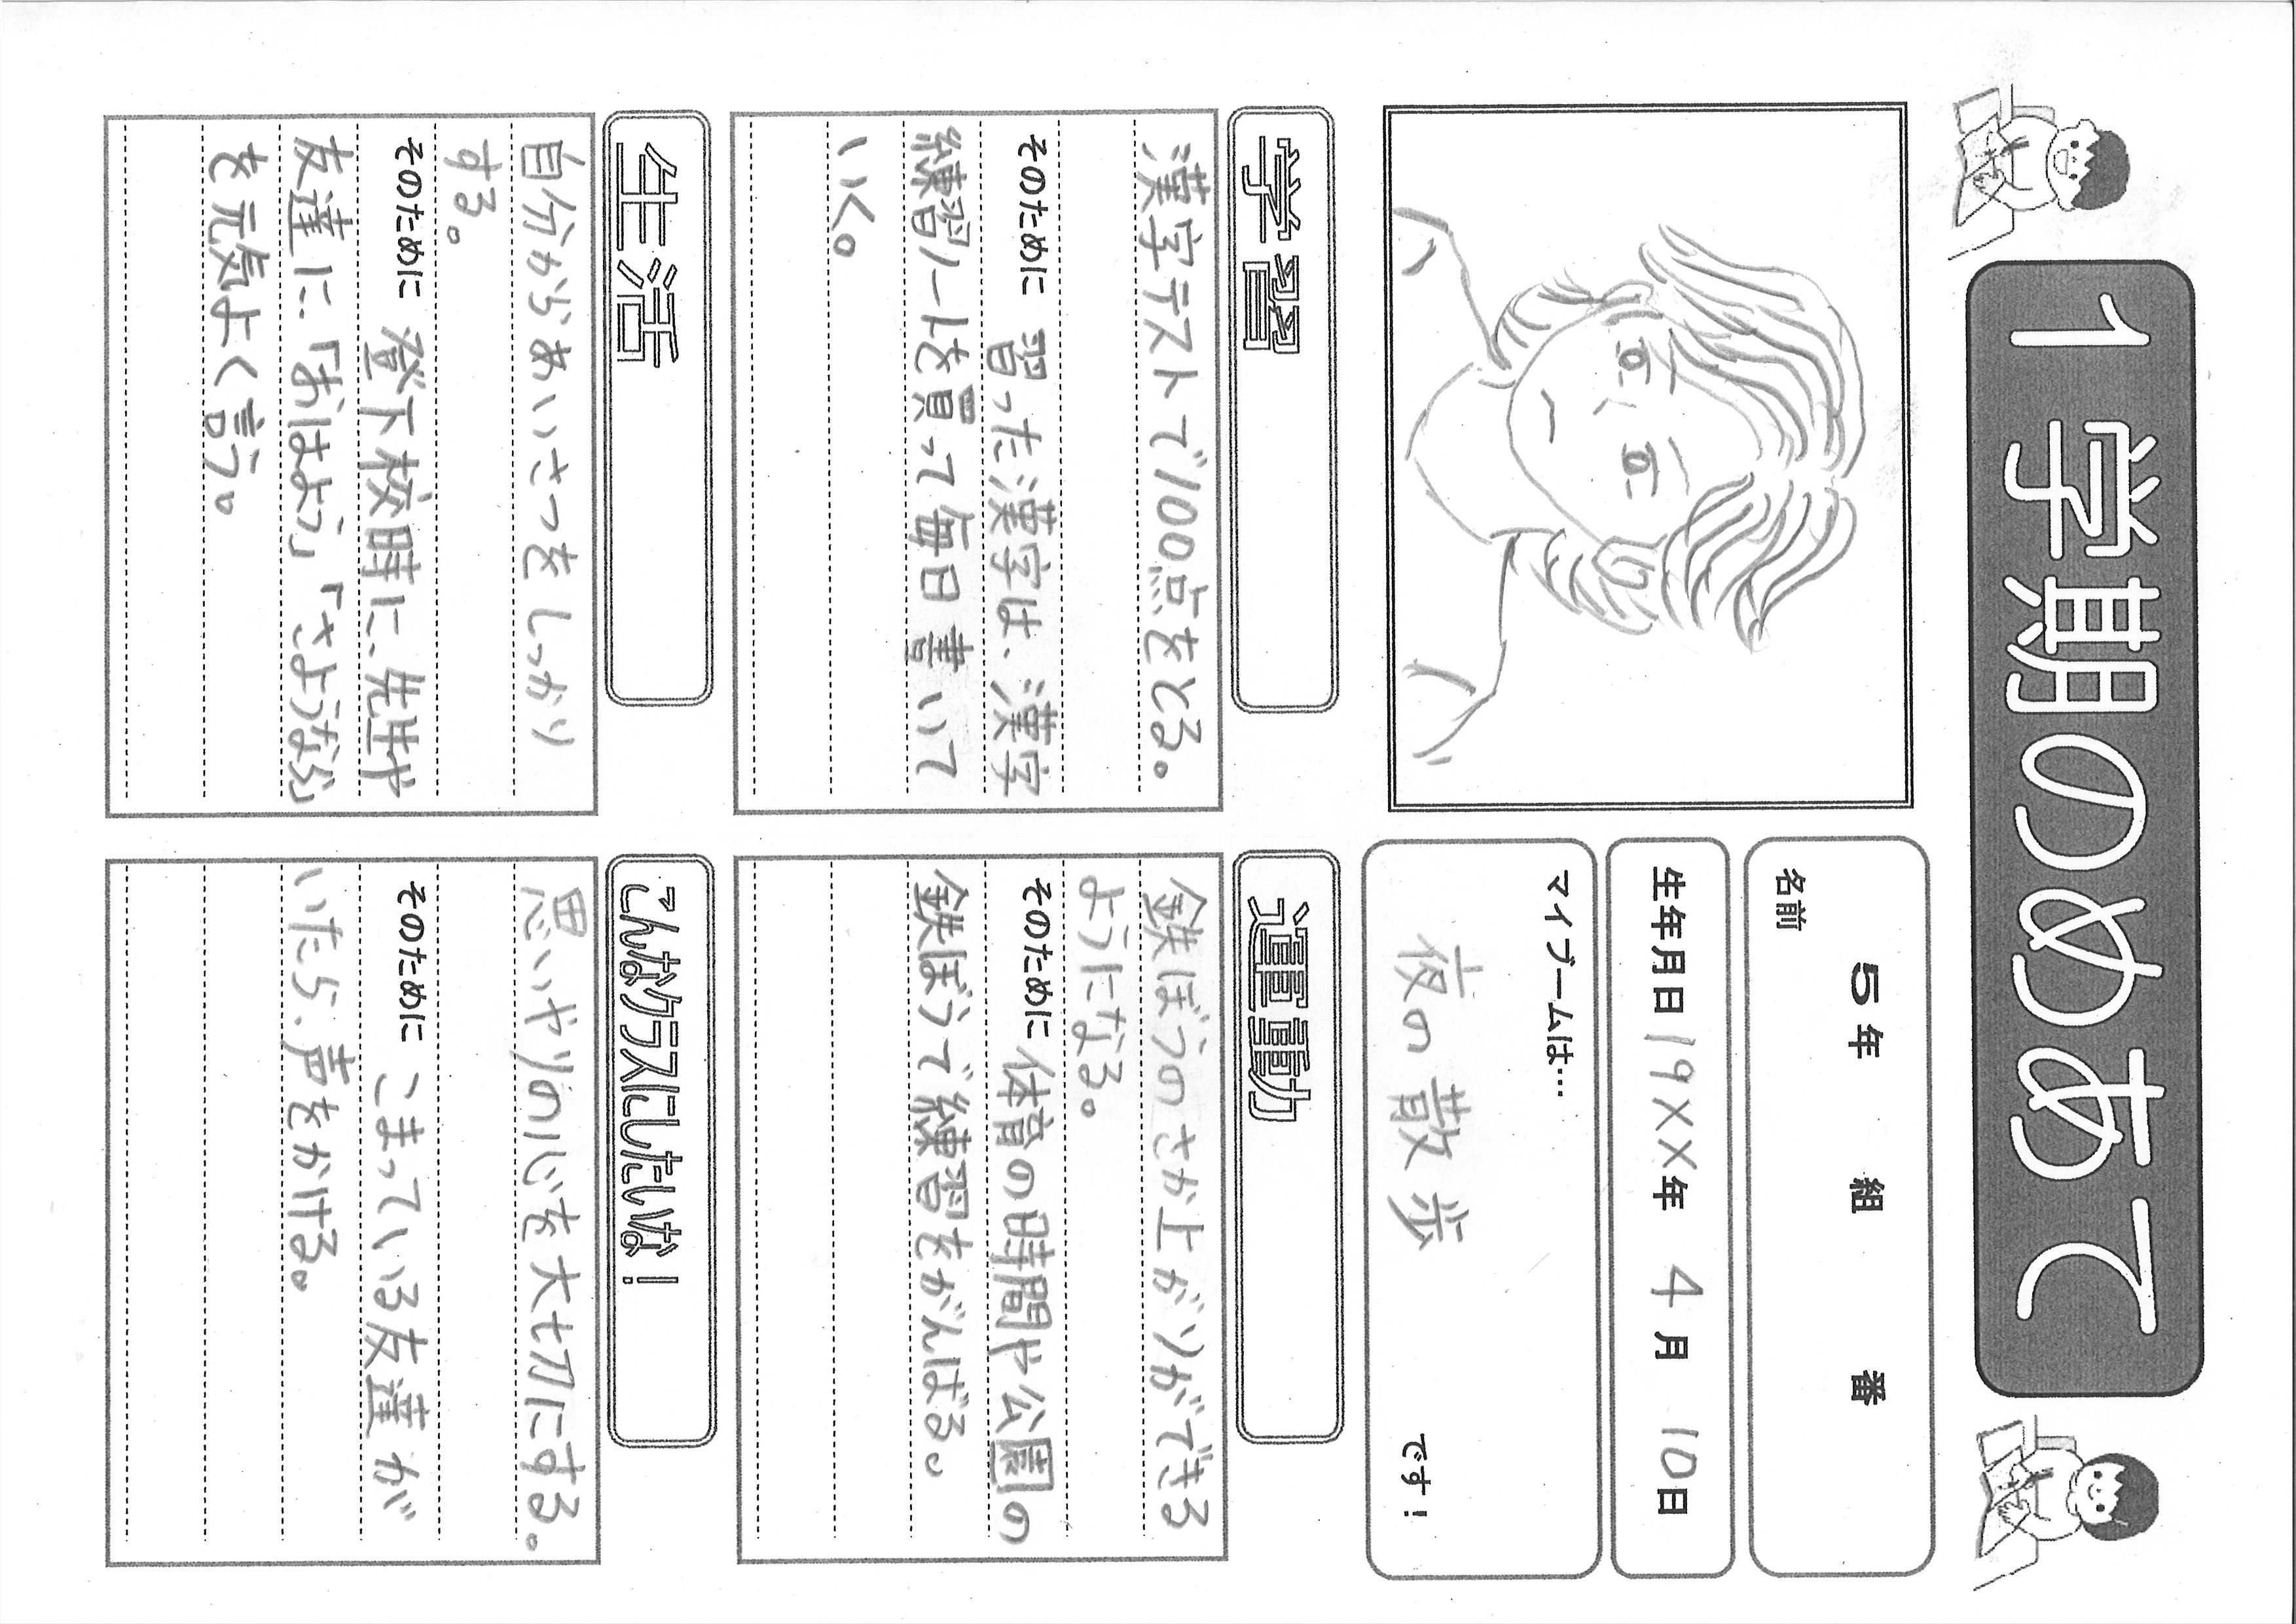 1学期のめあて
5年 組 番
名前
生年月日 19XX年 4月 10日
マイブームは…
夜の散歩
です!
学習
漢字テストで100点をとる。
そのために 習った漢字は、漢字
練習ノートを買って毎日書いて
いく。
運動
鉄ぼうのさか上がりができる
ようになる。
そのために 体育の時間や公園の
鉄ぼうで練習をがんばる。
生活
自分からあいさつをしっかり
する。
そのために 登下校時に、先生や
友達に「おはよう」「さようなら」
を元気よく言う。
こんなクラスにしたいな!
思いやりの心を大切にする。
そのために こまっている友達が
いたら、声をかける。